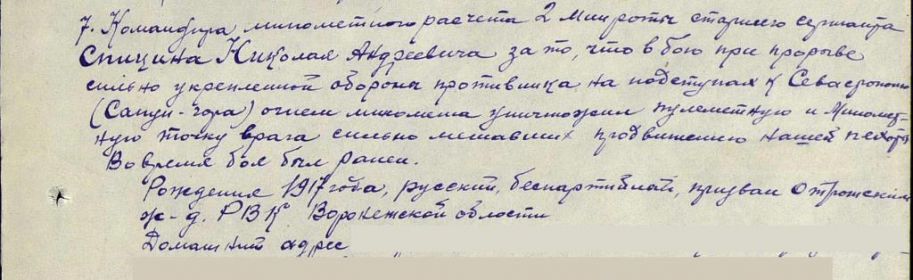 7. Командира минометного расчета 2 Мин роты старшего сержанта
Спицина Николая Андреевича за то, что в бою при прорыве
сильно укрепленной обороны противника на подступах к Севастополю
(Сапун-гора) огнем миномета уничтожил пулеметную и Миномет-
ную точку врага сильно мешавших продвижению нашей пехоты
Во время боя был ранен.
Рождения 1917 года, русский, беспартийный, призван Отрожским
ж-д. РВК Воронежской области
Домашний адрес